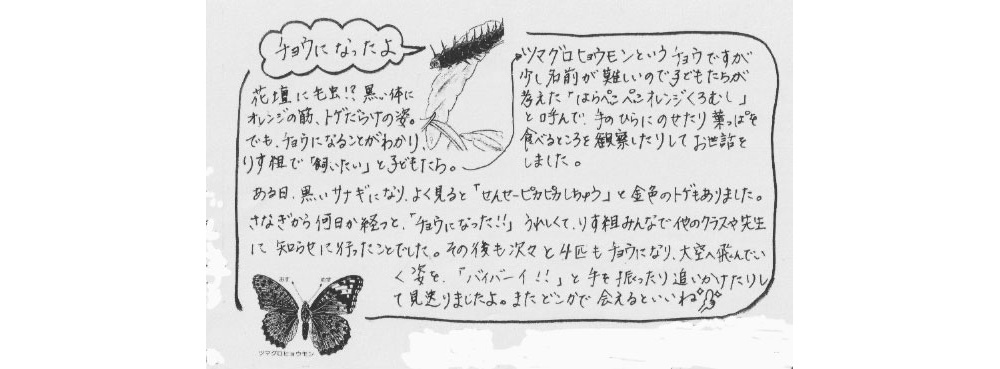 チョウになったよ
花壇に毛虫!?黒い体に
オレンジの筋、トゲだらけの姿。
でも、チョウになることがわかり、
りす組で「飼いたい」と子どもたち。
ツマグロヒョウモンというチョウですが
少し名前が難しいので子どもたちが
考えた「はらぺこペコオレンジくろむし」
と呼んで、手のひらにのせたり葉っぱを
食べるところを観察したりしてお世話を
しました。
ある日、黒いサナギになり、よく見ると「せんせーピカピカしちゅう」と金色のトゲもありました。
さなぎから何日か経つと、「チョウになった!!」うれしくて、りす組みんなで他のクラスや先生
に知らせに行ったことでした。その後も次々と4匹もチョウになり、大空へ飛んでい
く姿を、「バイバーイ!!」と手を振ったり追いかけたりし
て見送りましたよ。またどこかで会えるといいね
おす めす
ツマグロヒョウモン